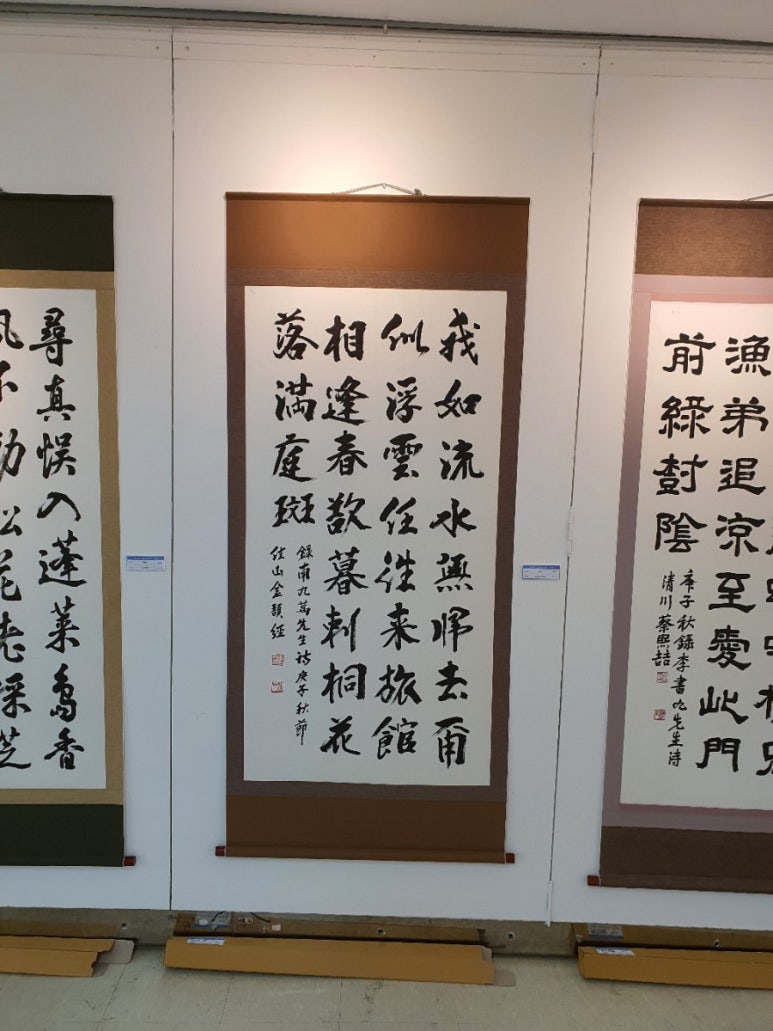 漁弟追凉至愛此門
前綠封陰
庚子秋録李書九先生詩
清川蔡熙喆
我如流水無歸去爾
似浮雲任往来旅館
相逢春欲暮刺桐花
落满庭斑
録南九萬先生詩庚子秋節
佳山金顯經
尋真悞入蓬莱島香
風不動松花老採芝